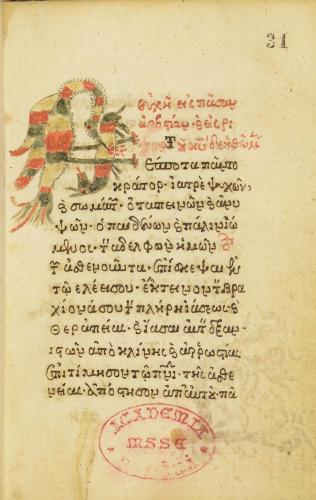 31
εὐχὴ εἰς πᾶσαν
Δέσποτα παντο
κράτορ· ἰατρὲ ψυχῶν
καὶ σωμάτ· ὁ ταπεινῶν καὶ ἀνυ
ψῶν· ὁ παιδεύων καὶ πάλιν ἰώ
μενος· τὸν ἀδελφὸν ἡμῶν
τὸν ἀσθενοῦντα ἐπίσκεψαι ἐν
τῷ ἐλέει σου· ἔκτεινον τὸν βρα
χίονά σου τὸν πλήρη ἰάσεως καὶ
θεραπείας· καὶ ἴασαι αὐτὸν ἐξανι
στῶν ἀπὸ κλίνης καὶ ἀρρωστίας
ἐπιτίμησον τῷ πνι· τῆς ἀσθε
νείας· ἀπόστησον ἀπ' αὐτοῦ πᾶ
ACADEMIA
MSSE